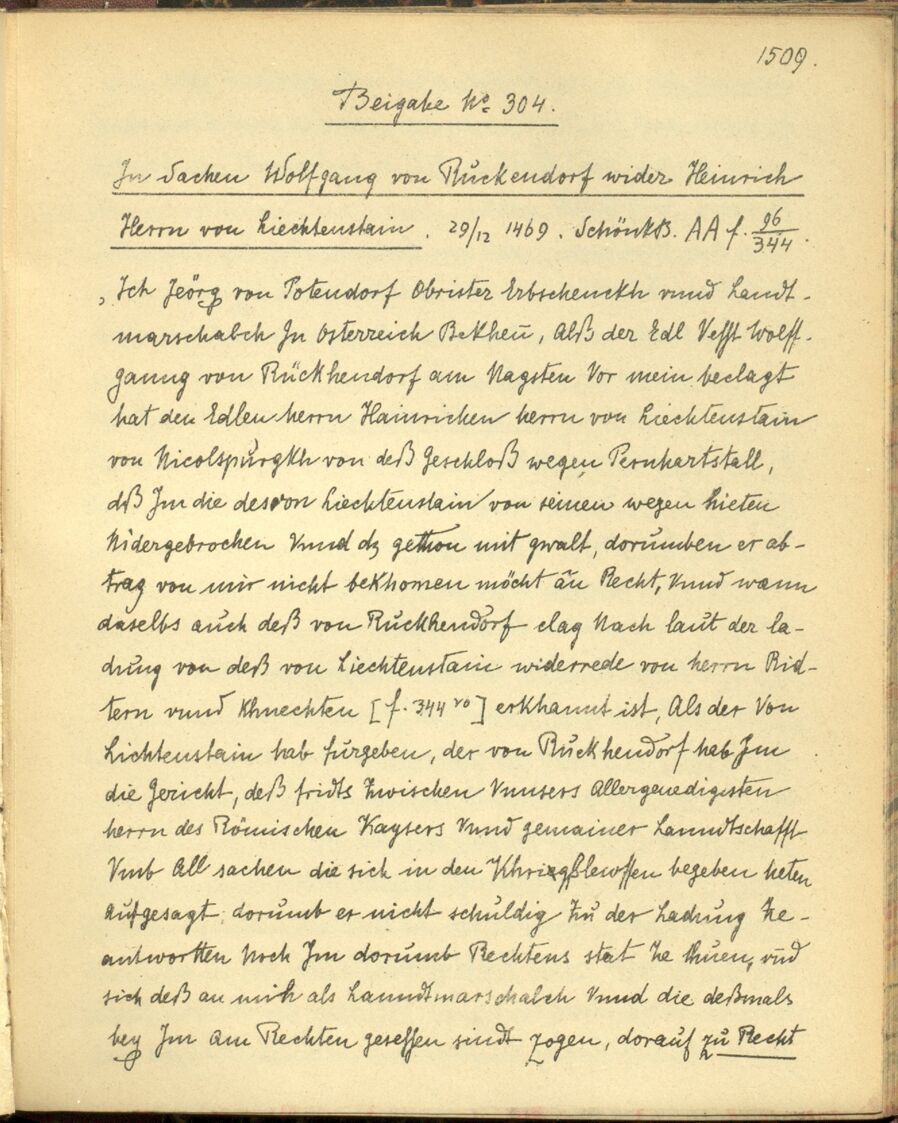 1509.
Beigabe No 304.
In Sachen Wolfgang von Ruckendorf wider Heinrich
Herrn von Liechtenstain. 29/12 1469. SchönkB. AA f. 96/344.
„Ich Jeörg von Potendorf Obrister Erbschenckh vnnd Landt-
marschalch In Osterreich Bekhen̄, Alß der Edl Vesst Wolff-
ganng von Rückhendorf am Nagsten Vor mein beclagt
hat den Edlen herrn Hainrichen herrn von Liechtenstain
von Nicolspurgkh von deß Geschloß wegen Pernhartstall,
dß Jm die des von Liechtenstain von seinen wegen hieten
Nidergebrochen Vnnd dz gethon mit gwalt, dorumben er ab-
trag von mir nicht bekhomen möcht an̄ Recht, Vnnd wann
daselbs auch deß von Ruckhendorf clag Nach laut der la-
dung von deß von Liechtenstain widerrede von herrn Rid-
tern vnnd Khnechten [f. 344 vo] erkhannt ist, Als der Von
Lichtenstain hab furgeben, der von Ruckhendorf hab Jm
die Gericht, deß fridts Zwischen Vnnsers Allergenedigisten
herrn des Römischen Kaysers Vnnd gemainer Lanndtschafft
Vmb All sachen die sich in den begeben heten
aufgesagt, dorumb er nicht schuldig Zu der Ladung Ze-
antwortten Noch Jm dorumb Rechtens stat Ze thuen, vnd
sich deß an mich als Lanndtmarschalch Vnnd die deßmals
bey Jm am Rechten gesessen sindt zogen, dorauf zu Recht